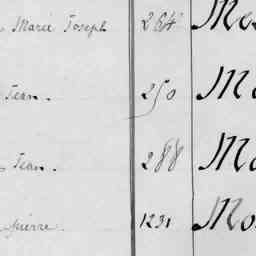 Marie Joseph 264 Mo
Jean. 250 Mo
Jean. 288 Mo
pierre. 1231 Mo